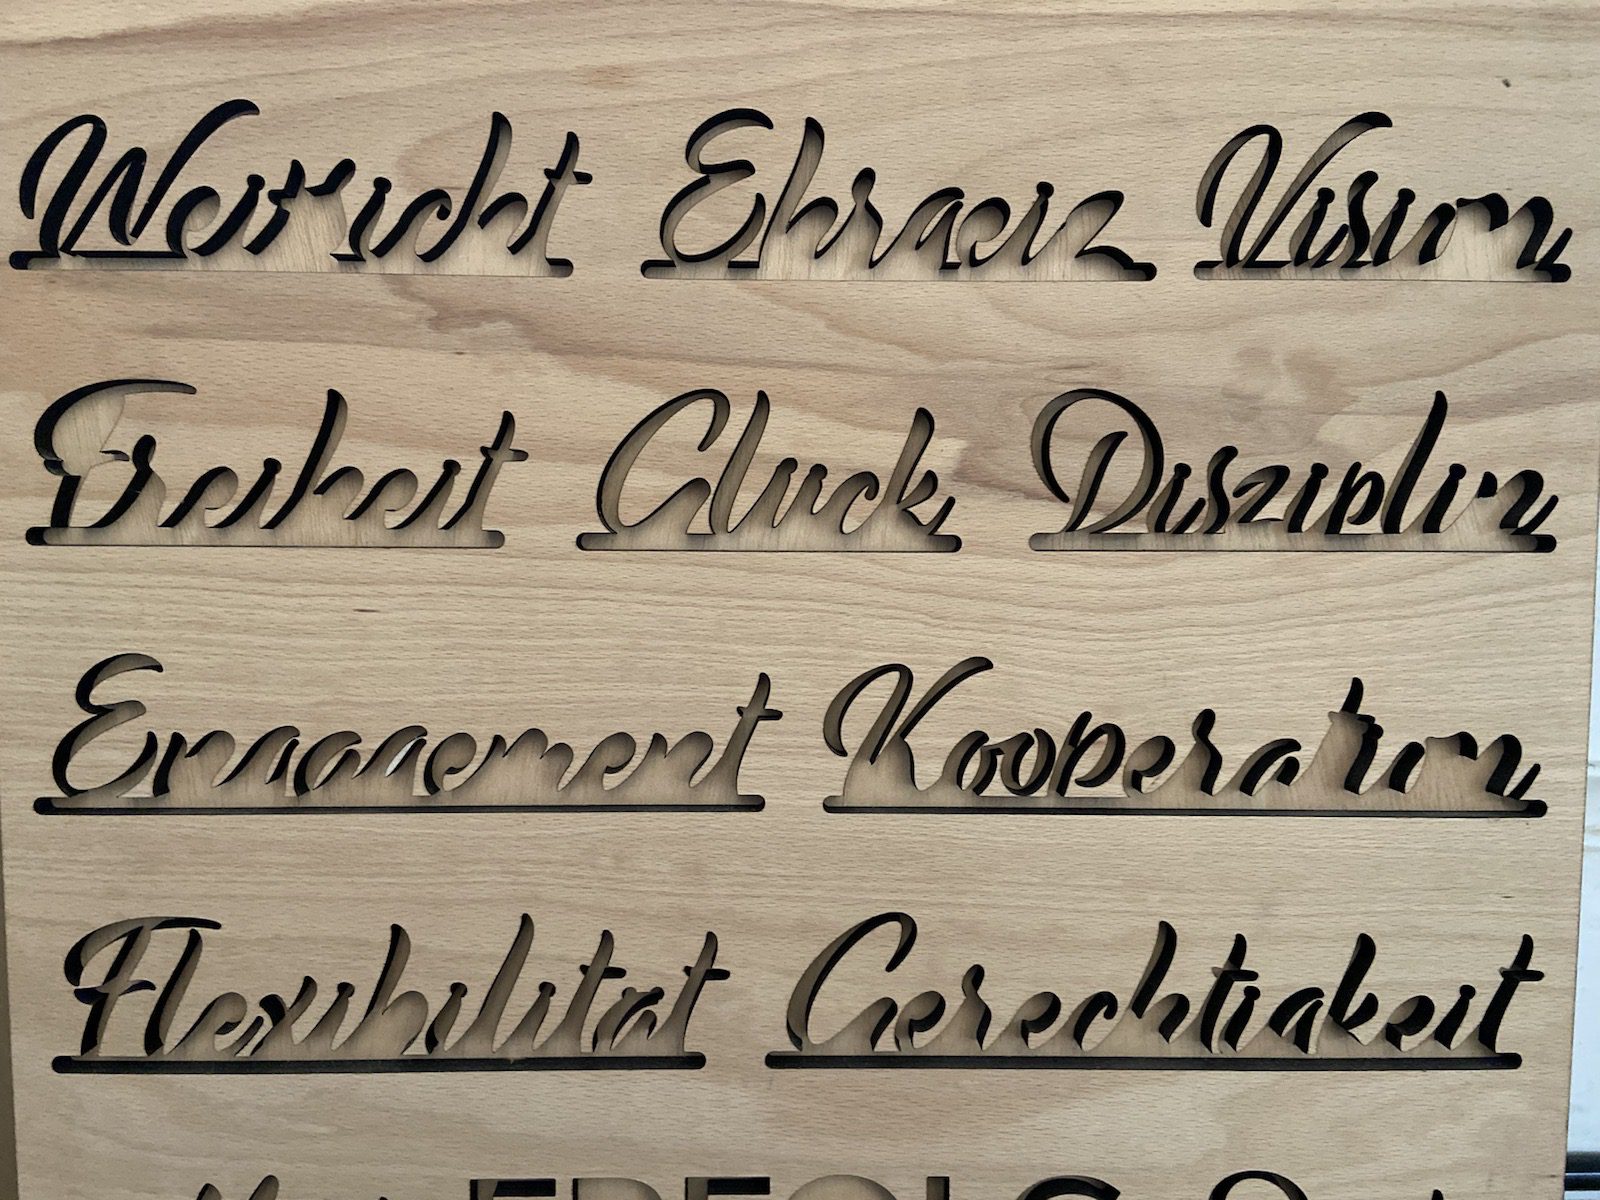 Weitsicht Ehrgeiz Vision
Freiheit Glück Disziplin
Engagement Kooperation
Flexibilität Gerechtigkeit
ERFOLG